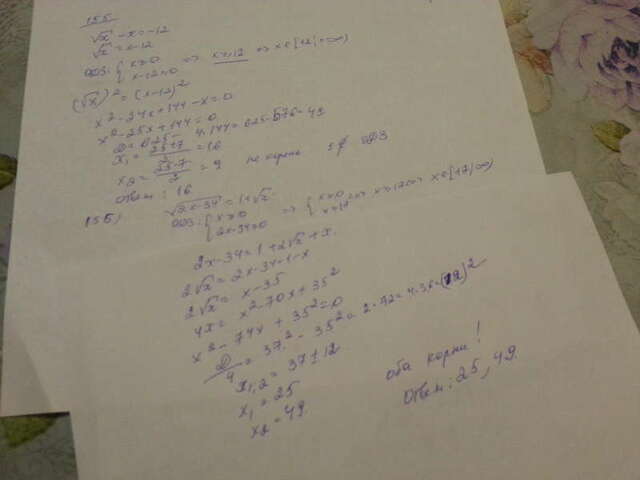 155
√x - x = -12
√x = x-12
ОДЗ: { x≥0 x-12≥0 => x≥12 <=> x∈[12;+∞)
(√x)² = (x-12)²
x²-24x+144-x=0
x²-25x+144=0
D = 625 - 4·144 = 625-576 = 49
x₁ = (25+7)/2 = 16
x₂ = (25-7)/2 = 9 не корень ОДЗ
Ответ: 16
155) √2x-34 = 1+√x
ОДЗ: { x≥0 2x-34≥0 => { x≥0 x≥17 => x≥17 <=> x∈[17;∞)
2x-34 = 1+2√x+x
2√x = 2x-34-1-x
2√x = x-35
4x = x²-70x+35²
x²-74x+35²=0
D/4 = 37²-35² = 2·72 = 4·36 = (12)²
x₁,₂ = 37±12
x₁ = 25
x₂ = 49
оба корни!
Ответ: 25, 49.